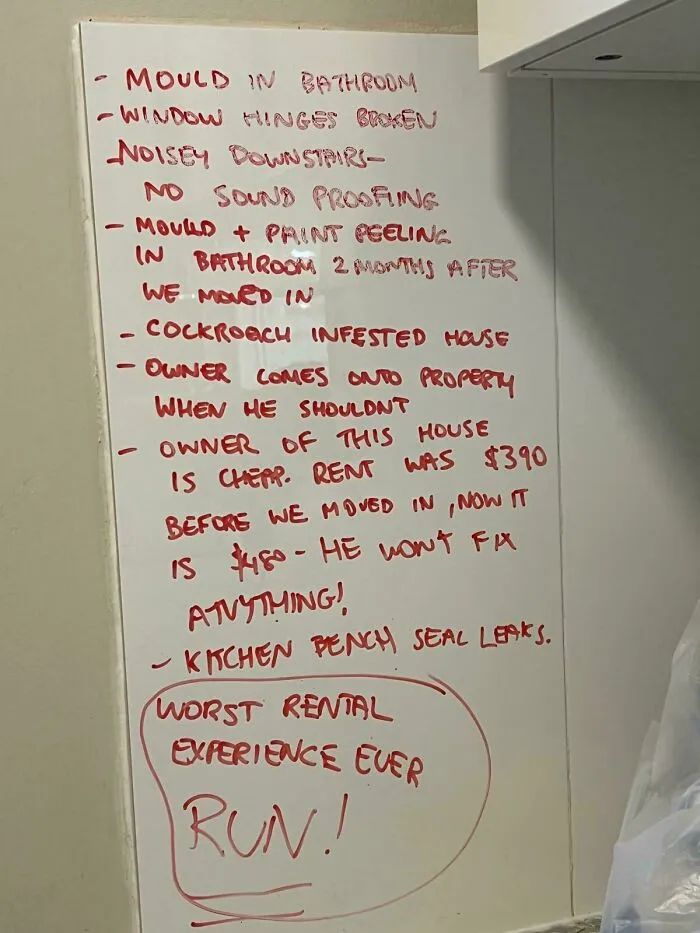 - MOULD IN BATHROOM
- WINDOW HINGES BROKEN
- NOISEY DOWNSTAIRS-
NO SOUND PROOFING
- MOULD + PAINT PEELING
IN BATHROOM 2 MONTHS AFTER
WE MOVED IN
- COCKROACH INFESTED HOUSE
- OWNER COMES ONTO PROPERTY
WHEN HE SHOULDNT
- OWNER OF THIS HOUSE
IS CHEAP. RENT WAS $390
BEFORE WE MOVED IN, NOW IT
IS $480 - HE WON'T FIX
ANYTHING!
- KITCHEN BENCH SEAL LEAKS.
WORST RENTAL
EXPERIENCE EVER
RUN!